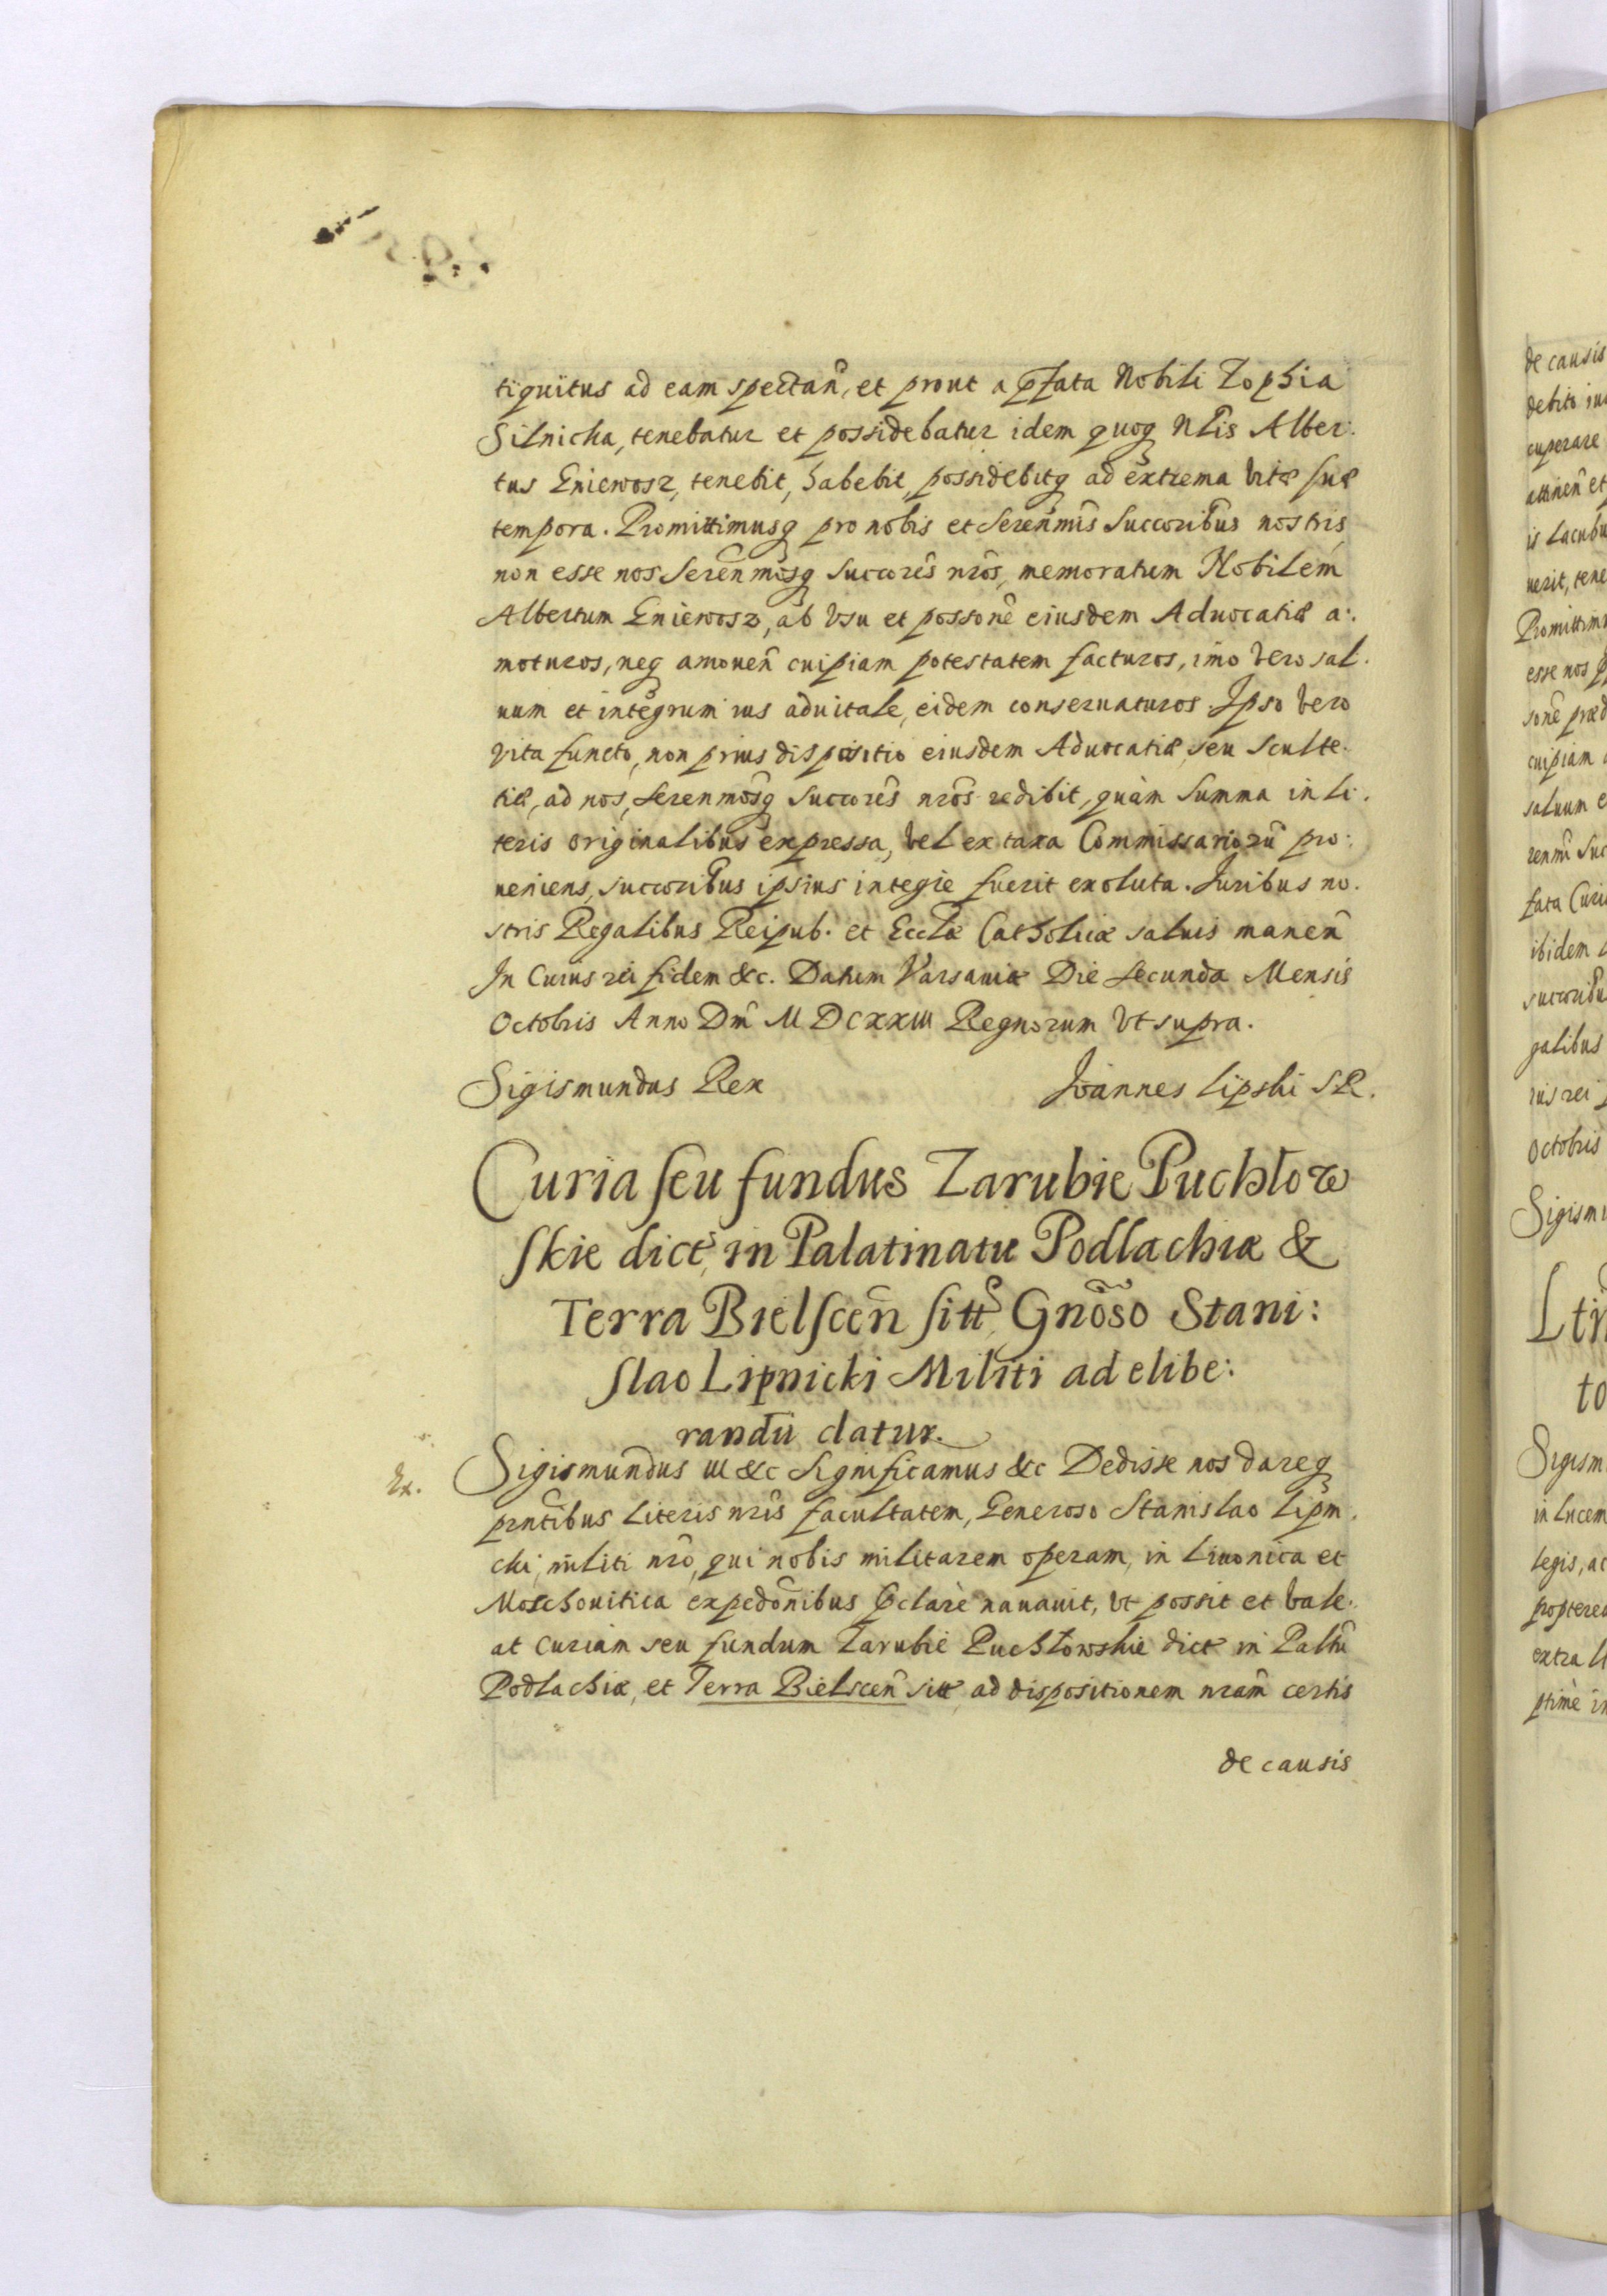 tiquitus ad eam spectañ, et prout a p̱fata Nobili Zophia
Silnicka, tenebatur et possidebatur idem quoq̨ Nl̃is Alber:
tus Gniewosz, tenebit, habebit, possidebitq̨ ad extrema vitæ suæ
tempora. Promittimusq̨ pro nobis et Sereñmis Succoribũs nostris,
non esse nos Sereñmosq̨ Succorẽs nr̃os, memoratum Nobilem
Albertum Gniewosz, ab Vsu et possonẽ eiusdem Aduocatiæ a:
moturos, neq̨ amoueñ cuipiam potestatem facturos, imo vero sal:
uum et integrum ius aduitale, eidem conseruaturos. Ipso vero
vita functo, non prius dispositio eiusdem Aduocatiæ, seu Sculte:
tiæ, ad nos, Sereñmosq̨ Succorẽs nr̃os redibit, quàm Summa in li:
teris originalibus expressa, vel ex taxa Commissariorũ pro:
ueniens, succoribũs ipsius integrè fuerit exoluta. Juribus no:
stris Regalibus Reipub. et Eccl̃æ Catholicæ saluis maneñ
In Cuius rei fidem &c. Datum Varsauiæ Die Secunda Mensis
Octobris Anno Dñi M DCXXIII Regnorum vt supra.
Sigismundus Rex Joannes Lipski SR.
Curia seu fundus Zarubie Puchłow
skie dict, in Palatinatu Podlachiæ &
Terra Bielsceñ sitt, Gnõso Stani:
slao Lipnicki Militi ad elibe:
randũ datur.
Ex.
Sigismundus III &c Significamus &c Dedisse nos dareq̨
prñtibus literis nr̃is facultatem, Generoso Stanislao Lipni
cki, militi nr̃o, qui nobis militarem operam, in Liuonica et
Moschouitica expedoñibus p̱clarè nauauit, vt possit et vale:
at Curiam seu fundum Zarubie Puchłowskie dict in Paltũ
Podlachiæ, et Terra Bielsceñ sitt, ad dispositionem nr̃am certis
de causis